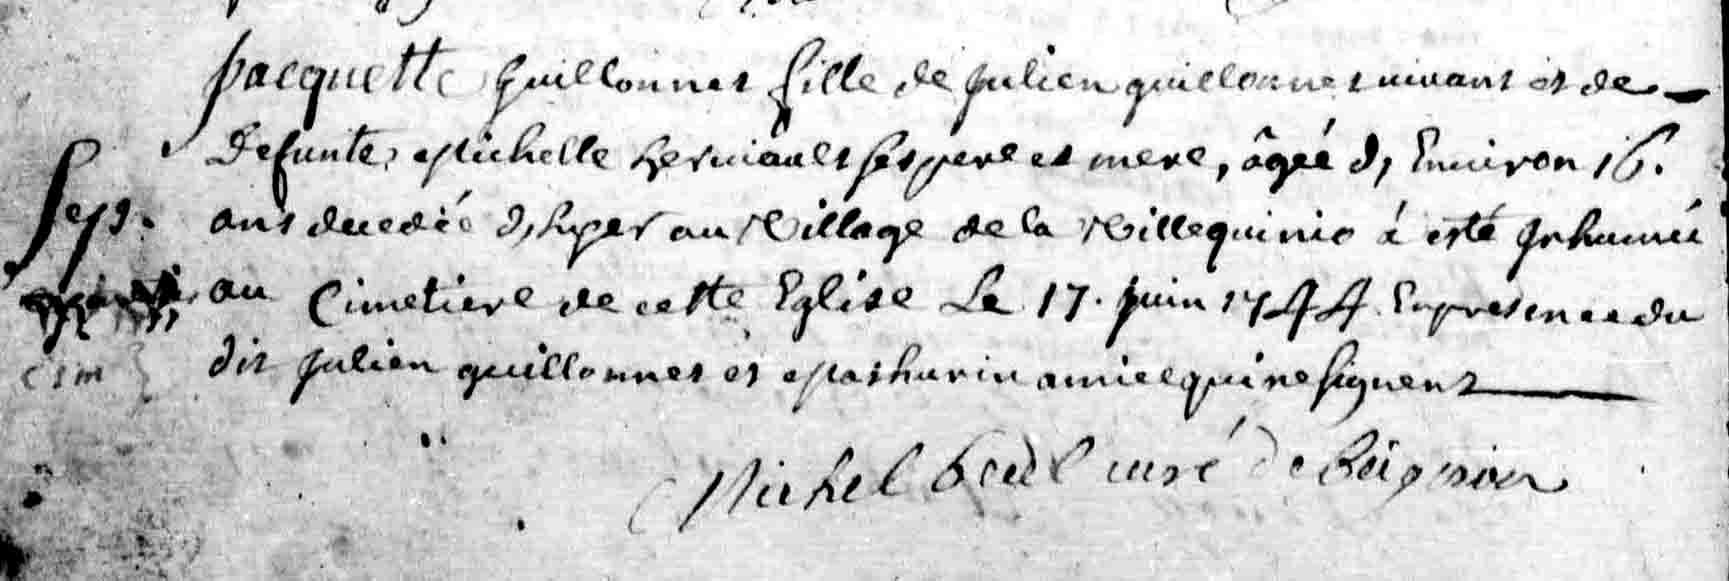 Jacquette Guillonnet fille de Julien guillonnet vivant et de
Defunte, Michelle Herviault ses pere et mere, âgée d, Environ 16.
Sep.
ans decedée d, hyer au Village de la Villequinio á esté Inhumée
au Cimetiere de cette Eglise Le 17. juin 1744 En presence du
dit Julien guillonnet et Mathurin amice qui ne signent
Michel curé de Beignon